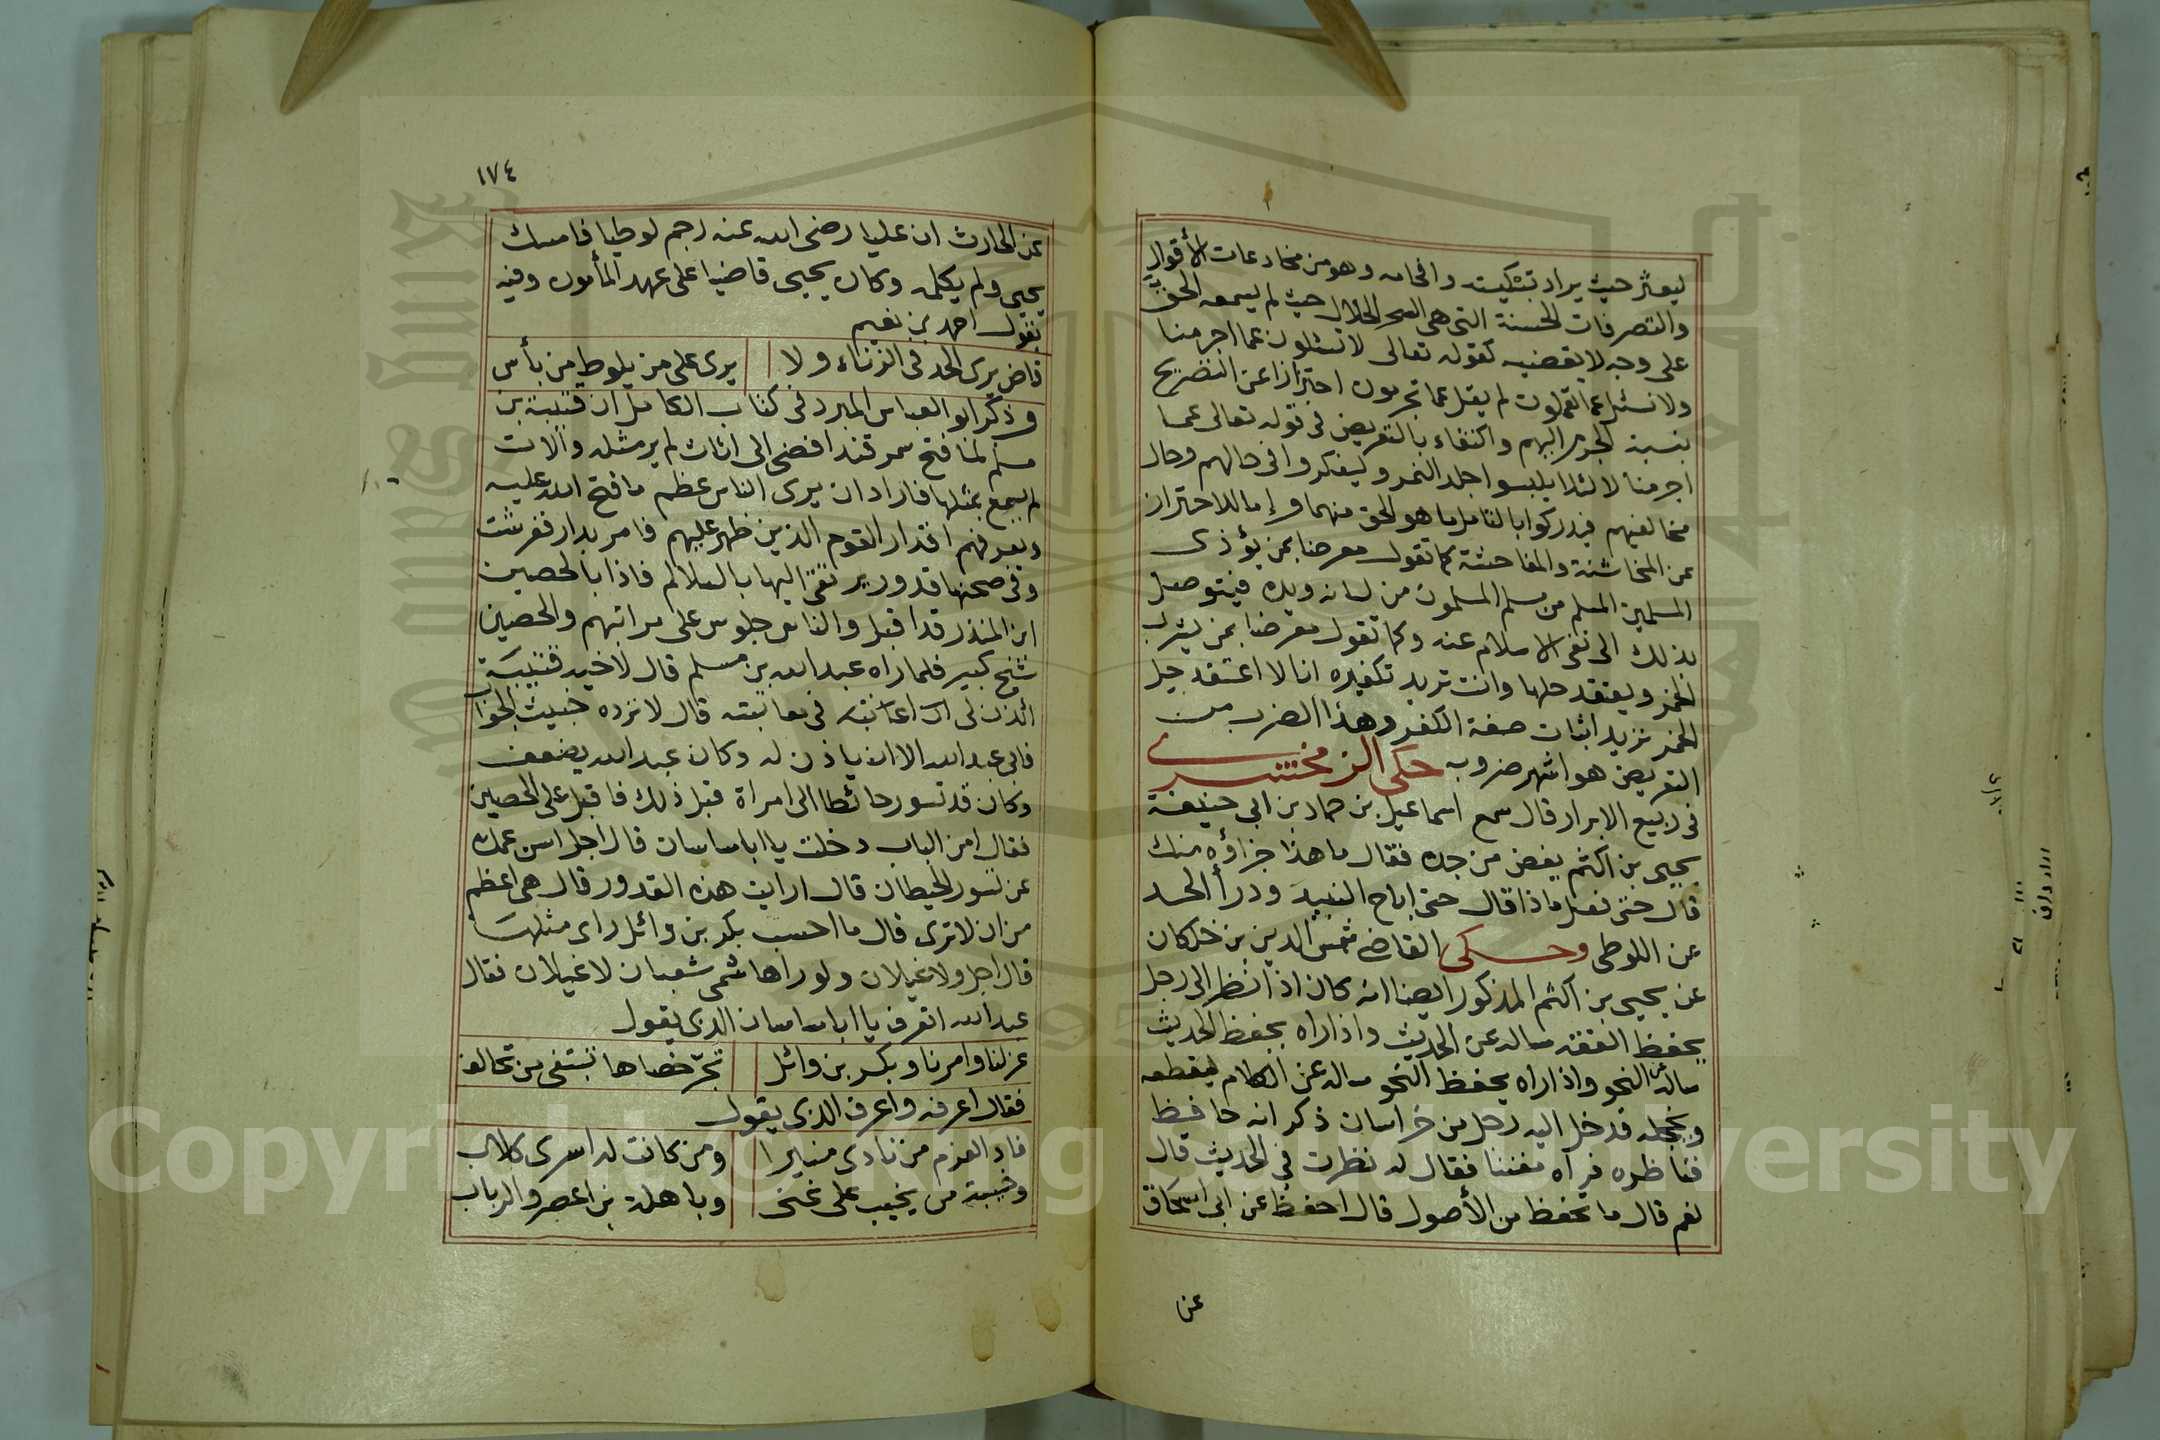 ليعثر حيث يراد تبكيته وافحامه وهو من مخادعات الأقوال
والتصرفات الحسنة التي هي السحر الحلال حيث لم يسمعه الحق
على وجه لا يغضبه كقوله تعالى لا تسئلون عما اجرمنا
ولا نسئل عما تعملون لم يقل عما تجرمون احترازا عن التصريح
بنسبة الجرم اليهم واكتفاء بالتعريض في قوله تعالى عما
اجرمنا لا لئلا يلبسوا جلد النمر وليفكروا في حالهم وحال
مخالفيهم فيدركوا بالتامل ما هو الحق منهما وإما للاحتراز
عن المخاشنة والمفاحشة كما تقول معرضا بمن يؤذى
المسلمين المسلم من سلم المسلمون من لسانه ويده فيتوصل
بذلك الى نفى الاسلام عنه وكما تقول معرضا بمن يشرب
الخمر ويعتقد حلها وانت تريد تكفيره انا لا اعتقد حل
الخمر تريد اثبات صفة الكفر وهذا الضرب من
التعريض هو اشهر ضروبه حكى الزمخشرى
في ربيع الابرار قال سمع اسماعيل بن حماد بن ابى حنيفة
يحيى بن اكثم يغض من جده فقال ما هذا جزاؤه منك
قال حتى فعل ماذا قال حتى اباح النبيذ ودرأ الحد
عن اللوطى وحكى القاضى شمس الدين بن خلكان
عن يحيى بن اكثم المذكور ايضا انه كان اذا نظر الى رجل
يحفظ الفقه ساله عن الحديث واذا راه يحفظ الحديث
ساله عن النحو واذا راه يحفظ النحو ساله عن الكلام ليقطعه
ويخجله فدخل اليه رجل من خراسان ذكر انه حافظ
فناظره فرآه مفننا فقال له نظرت في الحديث قال
نعم قال ما تحفظ من الأصول قال احفظ عن ابى اسحاق
عن
١٧٤
عن الحارث ان عليا رضى الله عنه رجم لوطيا فامسك
يحيى ولم يكلمه وكان يحيى قاضيا على عهد المأمون وفيه
يقول احمد بن نعيم
قاض يرى الحد في الزناء ولا يرى على من يلوط من بأس
وذكر ابو العباس المبرد في كتاب الكامل ان قتيبة بن
مسلم لما فتح سمرقند افضى الى اثاث لم ير مثله وآلات
لم يسمع بمثلها فاراد ان يرى الناس عظم ما فتح الله عليه
ويعرفهم اقدار القوم الذين ظهر عليهم فامر بدار ففرشت
وفى صحنها قدور يرتقى اليها بالسلالم فاذا بالحصين
ابن المنذر قد اقبل والناس جلوس على مراتبهم والحصين
شيخ كبير فلما راه عبد الله بن مسلم قال لاخيه قتيبة
ائذن لى في معاتبته قال لا ترده خبيث الجواب
فابى عبد الله الا ان ياذن له وكان عبد الله يضعف
وكان قد تسور حائطا الى امراة قبل ذلك فاقبل على الحصين
فقال امن الباب دخلت يا ابا ساسان قال اجل اسن عمك
عن تسور الحيطان قال ارايت هذه القدور قال هى اعظم
من ان لا ترى قال ما احسب بكر بن وائل راى مثلها
قال اجل ولا غيلان ولو راها سمى شبعان لا غيلان فقال
عبد الله اتعرف يا ابا ساسان الذى يقول
عزلنا وامرنا وبكر بن وائل تجر خصاها تبتغى من تحالف
فقال اعرفه واعرف الذى يقول
فاد الغرم من نادى مشيرا ومن كانت له اسرى كلاب
وخيبة من يخيب على غنى وباهلة بن اعصر والرباب
Copyright © King Saud University